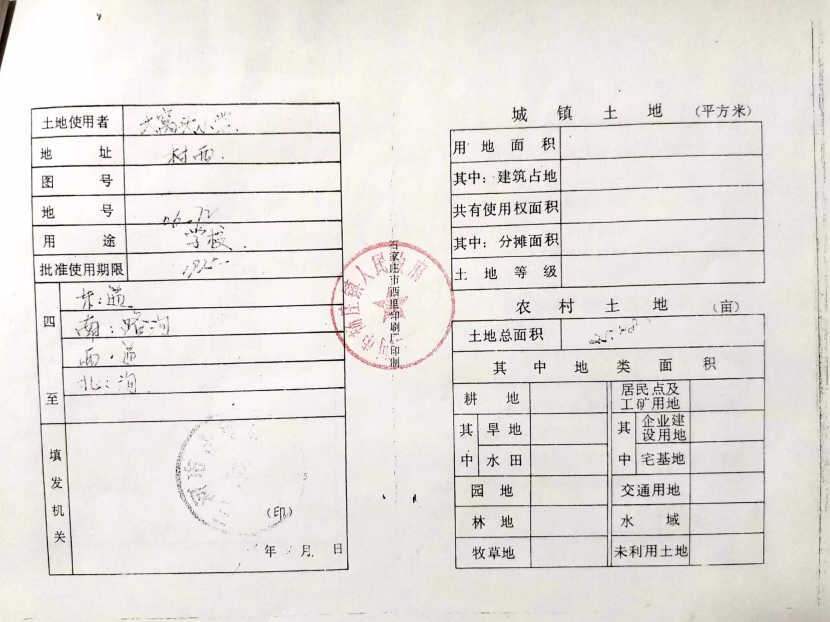 土地使用者
地 址 村西.
图 号
地 号 06-72
用 途 学校.
批准使用期限
四至
东:道
南:路沟
西:道
北:沟
填发机关
(印)
年 月 日
石家庄市西里印刷厂印制
镇人民政府
城 镇 土 地 (平方米)
用 地 面 积
其中:建筑占地
共有使用权面积
其中:分摊面积
土 地 等 级
农 村 土 地 (亩)
土地总面积
其 中 地 类 面 积
耕 地 居民点及工矿用地
其中 旱地 其中 企业建设用地
水田 宅基地
园 地 交通用地
林 地 水 域
牧草地 未利用土地